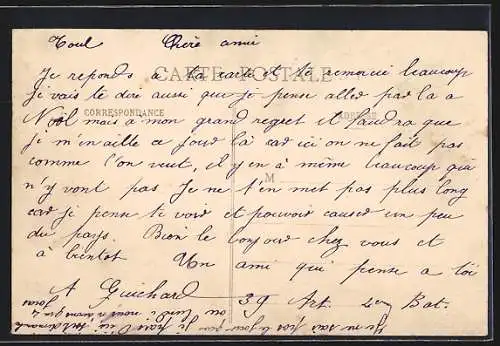 Toul Chère amie
CARTE POSTALE
Je reponds à ta carte et te remercie beaucoup
je vais te dire aussi que je pense aller par la a
CORRESPONDANCE
Noël mais a mon grand regret et faudra que
je m'en aille ce jour là car ici on ne fait pas
comme l'on veut, il y en à même beaucoup qui
M
n'y vont pas Je ne t'en met pas plus long
car je pense te voir et pouvoir causer un peu
du pays. Bien le bonjour chez vous et
à bientot Un ami qui pense a toi
A Guichard 39 Art. 2em Bat.
Je ne sai pas le jour que je pars